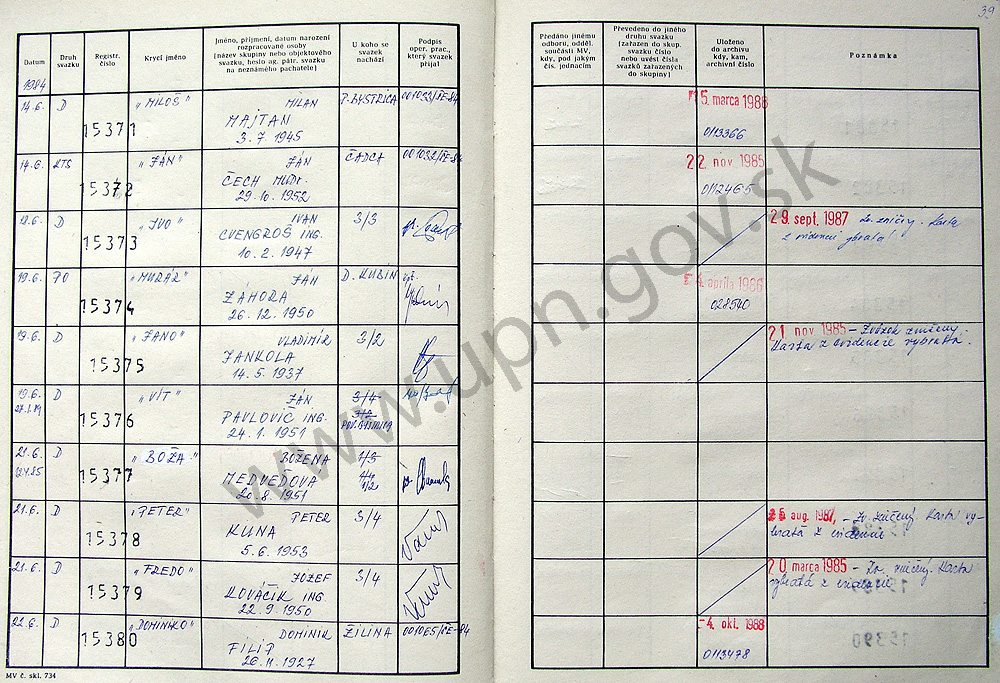 39
Datum
Druh svazku
Registr. číslo
Krycí jméno
Jméno, příjmení, datum narození
rozpracované osoby
(název skupiny nebo objektového
svazku, heslo ag. pátr. svazku
na neznámého pachatele)
U koho se
svazek
nachází
Podpis
oper. prac.,
který svazek
přijal
Předáno jinému
odboru, odděl.
součásti MV,
kdy, pod jakým
čís. jednacím
Převedeno do jiného
druhu svazku
(zařazen do skup.
svazku číslo
nebo uvést čísla
svazků zařazených
do skupiny)
Uloženo
do archivu
kdy, kam,
archivní číslo
Poznámka
1984
14.6. D 15371 „MILOŠ" MILAN P. BYSTRICA 001032/
MAJTAN
3.7.1945
5. marca 1986
0113366
14.6. 15372 „JÁN" JÁN ČADCA 001032/
ČECH MUDr.
29.10.1952
22. nov 1985
0112465
19.6. D 15373 „IVO" IVAN 3/3
CVENGROŠ ING.
10.2.1947
29. sept. 1987 Zv. zničený. Karta
z evidencie vybratá
19.6. PO 15374 „MURÁR" JÁN D. KUBÍN
ZÁHORA
26.12.1950
4. apríla 1986
028540
19.6. D 15375 „JANO" VLADIMÍR 3/2
JANKOLA
14.5.1937
21 nov 1985 – Zväzok zničený.
Karta z evidencie vybratá.
19.6. D 15376 „VÍT" JÁN 3/4
PAVLOVIČ ING.
24.1.1951
21.6. D 15377 „BOŽA" BOŽENA
MEDVEĎOVA
20.8.1951
21.6. D 15378 „PETER" PETER 3/4
KUNA
5.6.1953
aug. 1987, – Zv. zničený Karta vy-
bratá z evidencie
21.6. D 15379 „FREDO" JOZEF 3/4
KOVÁČIK ING.
22.9.1950
20. marca 1985 – Zv. zničený. Karta
vybratá z evidencie
22.6. D 15380 „DOMINIKO" DOMINIK ŽILINA 001065/
FILIP
26.11.1927
-4. okt. 1988
0113478
MV č. skl. 734
www.upn.gov.sk